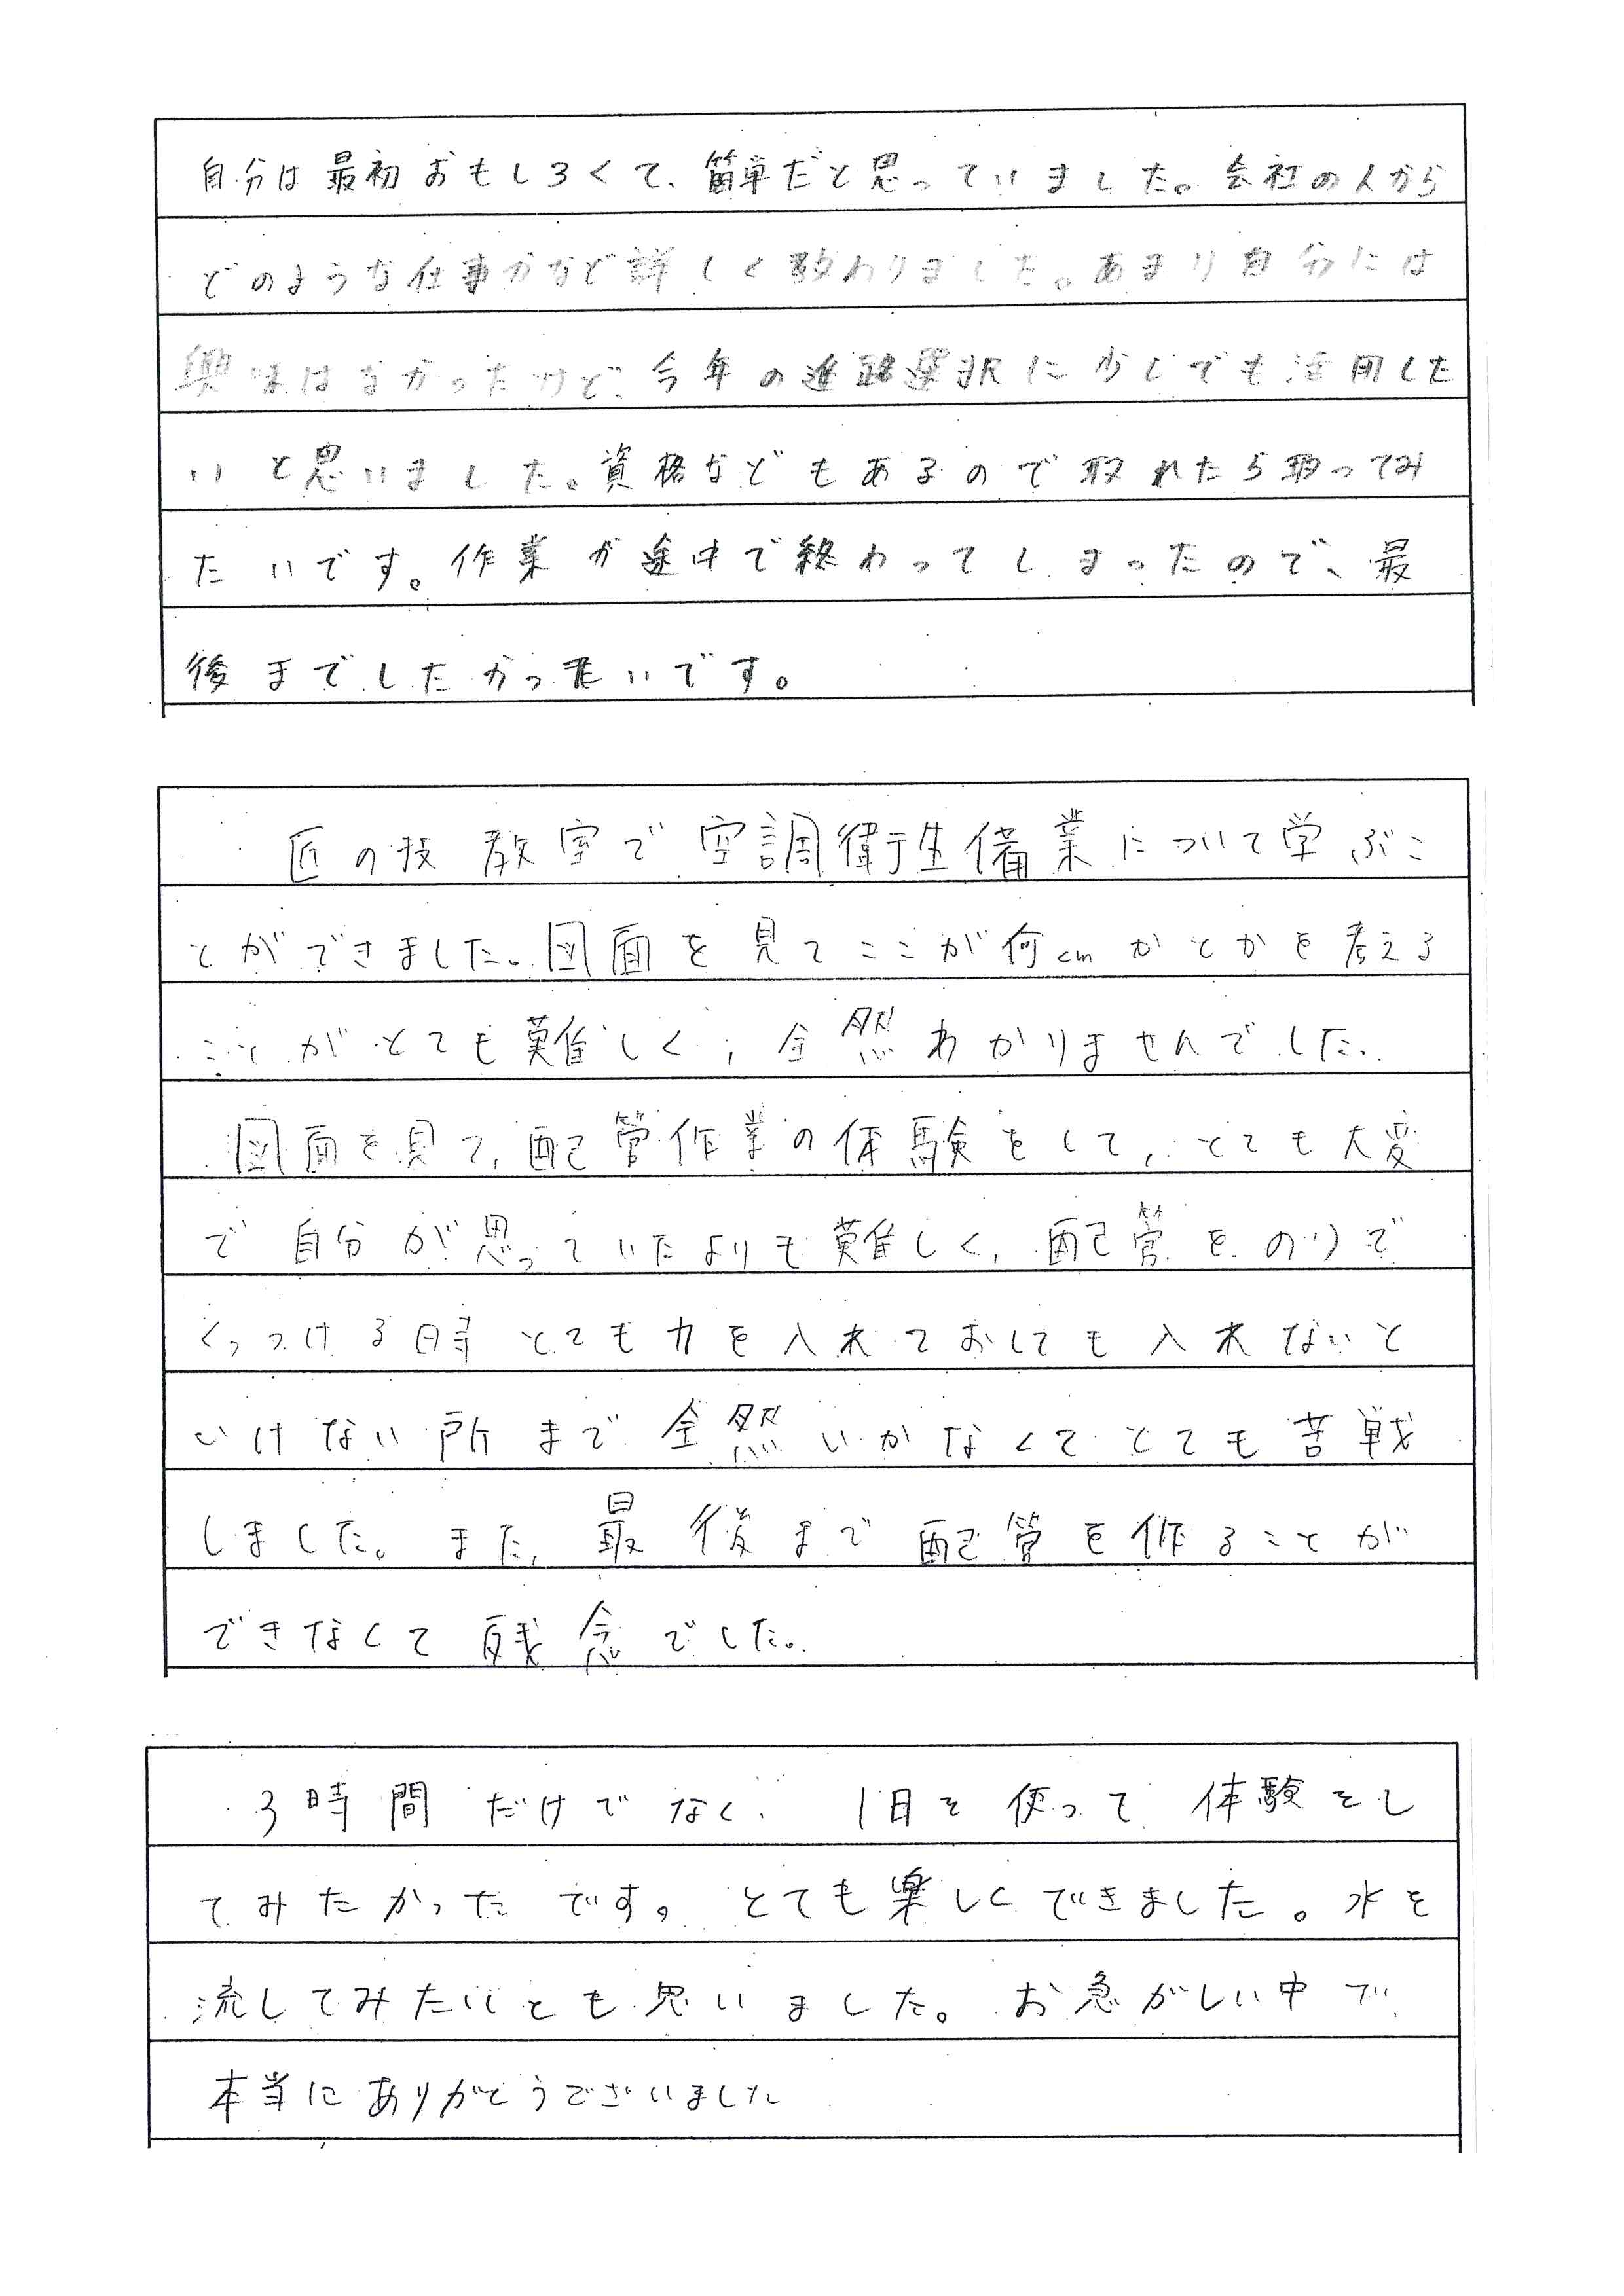 自分は最初おもしろくて、簡単だと思っていました。会社の人から
どのような仕事かなど詳しく教わりました。あまり自分には
興味はなかったけど、今年の進路選択に少しでも活用した
いと思いました。資格などもあるので取れたら取ってみ
たいです。作業が途中で終わってしまったので、最
後までしたかったいです。
匠の技教室で空調衛生備業について学ぶこ
とができました。図面を見てここが何cmかとかを考える
ことがとても難しく、全然わかりませんでした。
図面を見て、配管作業の体験をして、とても大変
で自分が思っていたよりも難しく、配管をのりで
くっつける時とても力を入れておしても入れないと
いけない所まで全然いかなくてとても苦戦
しました。また、最後まで配管を作ることが
できなくて残念でした。
3時間だけでなく、1日を使って体験をし
てみたかったです。とても楽しくできました。水を
流してみたいとも思いました。お急がしい中で
本当にありがとうございました